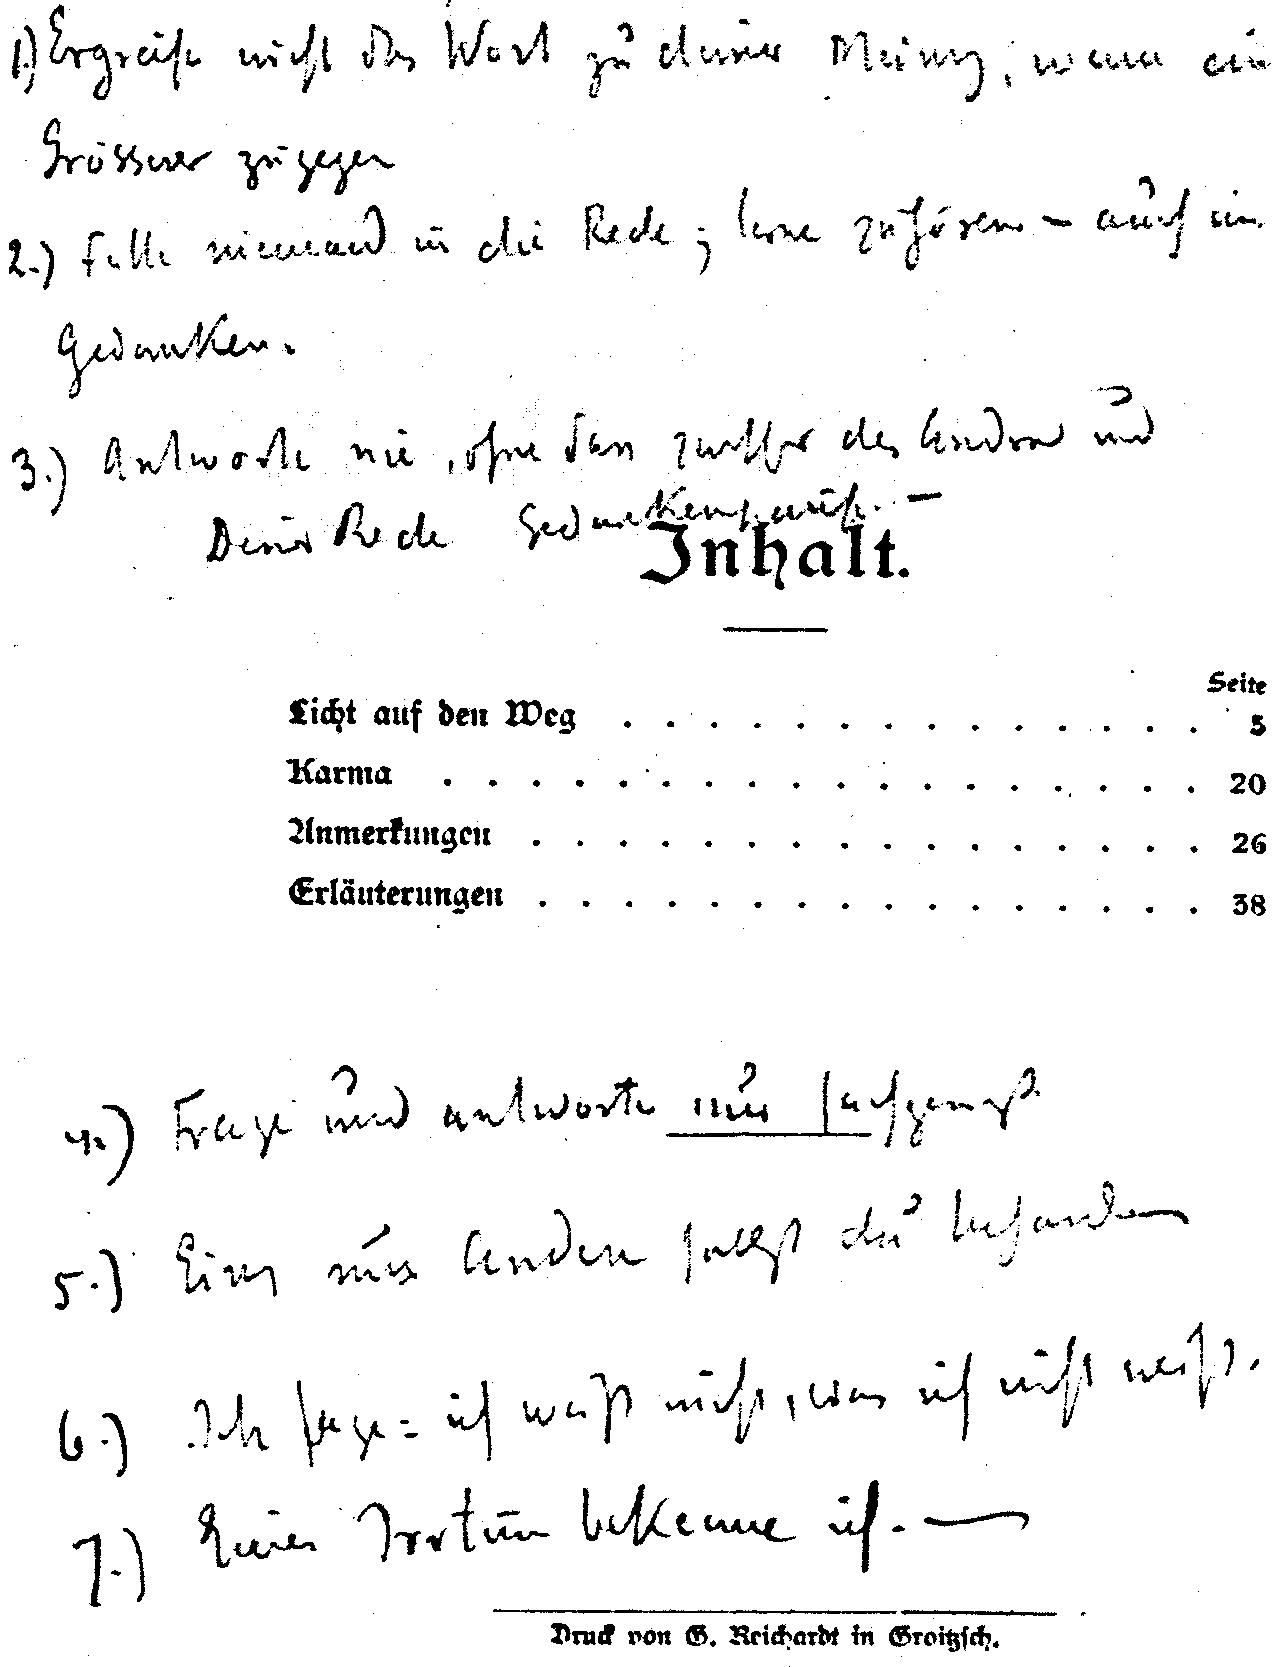 1.) Ergreife nicht das Wort zu deiner Meinung, wenn ein
Grösserer zugegen
2.) Falle niemand in die Rede; lerne zuhören – auch in
Gedanken.
3.) Antworte nie, ohne dass zwischen des Andren und
Deiner Rede Gedankenpause. –
Inhalt.
Seite
Licht auf den Weg . . . . . . . . . . . . . . 5
Karma . . . . . . . . . . . . . . . . . . 20
Anmerkungen . . . . . . . . . . . . . . . . 26
Erläuterungen . . . . . . . . . . . . . . . . 38
4.) Frage und antworte nur sachgemäß
5.) Eines Andere sollst du
6.) Ich sage = ich weiß nicht, was ich nicht weiß.
7.) Einen Irrtum bekenne ich. —
Druck von G. Reichardt in Groitzsch.